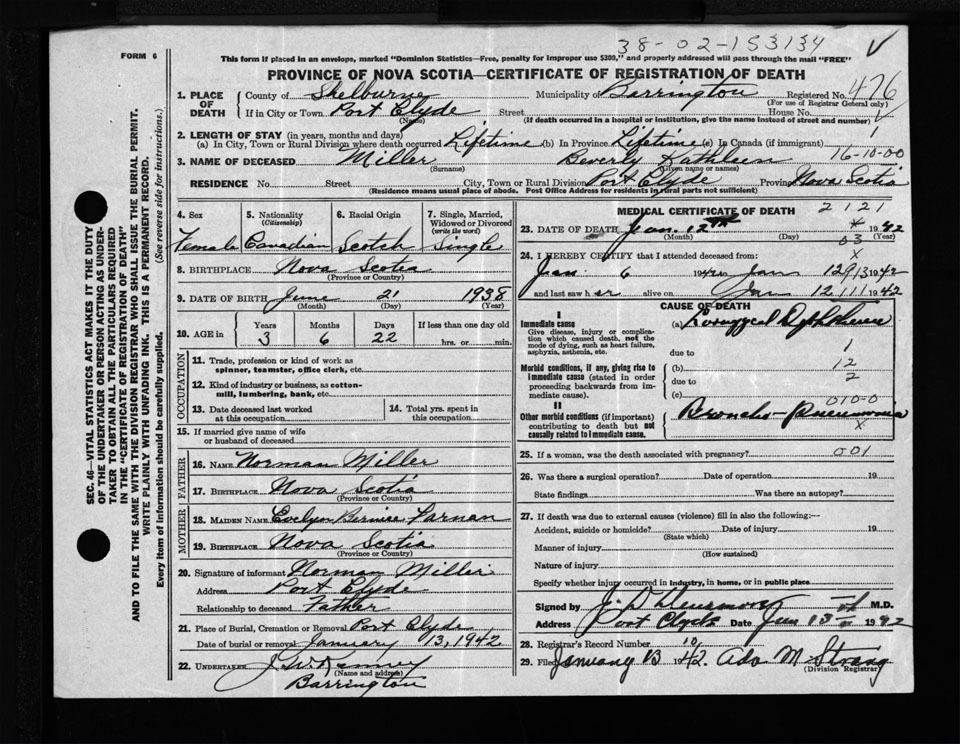 38-02-153134
FORM 6
This form if placed in an envelope, marked "Dominion Statistics—Free, penalty for improper use $300," and properly addressed will pass through the mail "FREE"
PROVINCE OF NOVA SCOTIA—CERTIFICATE OF REGISTRATION OF DEATH
1. PLACE OF DEATH
County of Shelburne Municipality of Barrington Registered No. 476
(For use of Registrar General only)
If in City or Town Port Clyde Street House No.
(Name) (If death occurred in a hospital or institution, give the name instead of street and number)
2. LENGTH OF STAY (in years, months and days)
(a) In City, Town or Rural Division where death occurred Lifetime (b) In Province Lifetime (c) In Canada (if immigrant) 1
3. NAME OF DECEASED Miller Beverly Kathleen 16-10-00
(Surname) (Given name or names)
RESIDENCE No. Street City, Town or Rural Division Port Clyde Province Nova Scotia
(Residence means usual place of abode. Post Office Address for residents in rural parts not sufficient)
4. Sex
Female
5. Nationality (Citizenship)
Canadian
6. Racial Origin
Scotch
7. Single, Married, Widowed or Divorced (write the word)
Single
8. BIRTHPLACE Nova Scotia
(Province or Country)
9. DATE OF BIRTH June 21 1938
(Month) (Day) (Year)
10. AGE in
Years Months Days If less than one day old
3 6 22 hrs. or min.
OCCUPATION
11. Trade, profession or kind of work as spinner, teamster, office clerk, etc.
12. Kind of industry or business, as cotton-mill, lumbering, bank, etc.
13. Date deceased last worked at this occupation
14. Total yrs. spent in this occupation
15. If married give name of wife or husband of deceased
FATHER
16. NAME Norman Miller
17. BIRTHPLACE Nova Scotia
(Province or Country)
MOTHER
18. MAIDEN NAME Evelyn Bernice
19. BIRTHPLACE Nova Scotia
(Province or Country)
20. Signature of informant Norman Miller
Address Port Clyde
Relationship to deceased Father
21. Place of Burial, Cremation or Removal Port Clyde
Date of burial or removal January 13, 1942
22. UNDERTAKER
(Name and address)
Barrington
MEDICAL CERTIFICATE OF DEATH 2121
23. DATE OF DEATH Jan. 12th 1942
(Month) (Day) 03 (Year)
24. I HEREBY CERTIFY that I attended deceased from:
Jan 6 1942 Jan 12 1942
and last saw her alive on Jan 12 1942
CAUSE OF DEATH
I
Immediate cause
Give disease, injury or complication which caused death, not the mode of dying, such as heart failure, asphyxia, asthenia, etc.
(a)
due to 1
Morbid conditions, if any, giving rise to immediate cause (stated in order proceeding backwards from immediate cause).
(b) 12
due to 2
(c) 010-0
II
Other morbid conditions (if important) contributing to death but not causally related to immediate cause.
Broncho-Pneumonia
x
25. If a woman, was the death associated with pregnancy? 001
26. Was there a surgical operation? Date of operation 19
State findings Was there an autopsy?
27. If death was due to external causes (violence) fill in also the following:—
Accident, suicide or homicide? Date of injury 19
(State which)
Manner of injury
(How sustained)
Nature of injury
Specify whether injury occurred in industry, in home, or in public place
Signed by M.D.
Address Port Clyde Date Jan 13th 1942
28. Registrar's Record Number 10
29. Filed January 13 1942. Ada M Strang
(Division Registrar)
SEC. 46—VITAL STATISTICS ACT MAKES IT THE DUTY
OF THE UNDERTAKER OR PERSON ACTING AS UNDERTAKER TO OBTAIN ALL THE PARTICULARS REQUIRED
IN THE "CERTIFICATE OF REGISTRATION OF DEATH"
AND TO FILE THE SAME WITH THE DIVISION REGISTRAR WHO SHALL ISSUE THE BURIAL PERMIT.
WRITE PLAINLY WITH UNFADING INK. THIS IS A PERMANENT RECORD.
Every item of information should be carefully supplied. (See reverse side for instructions.)